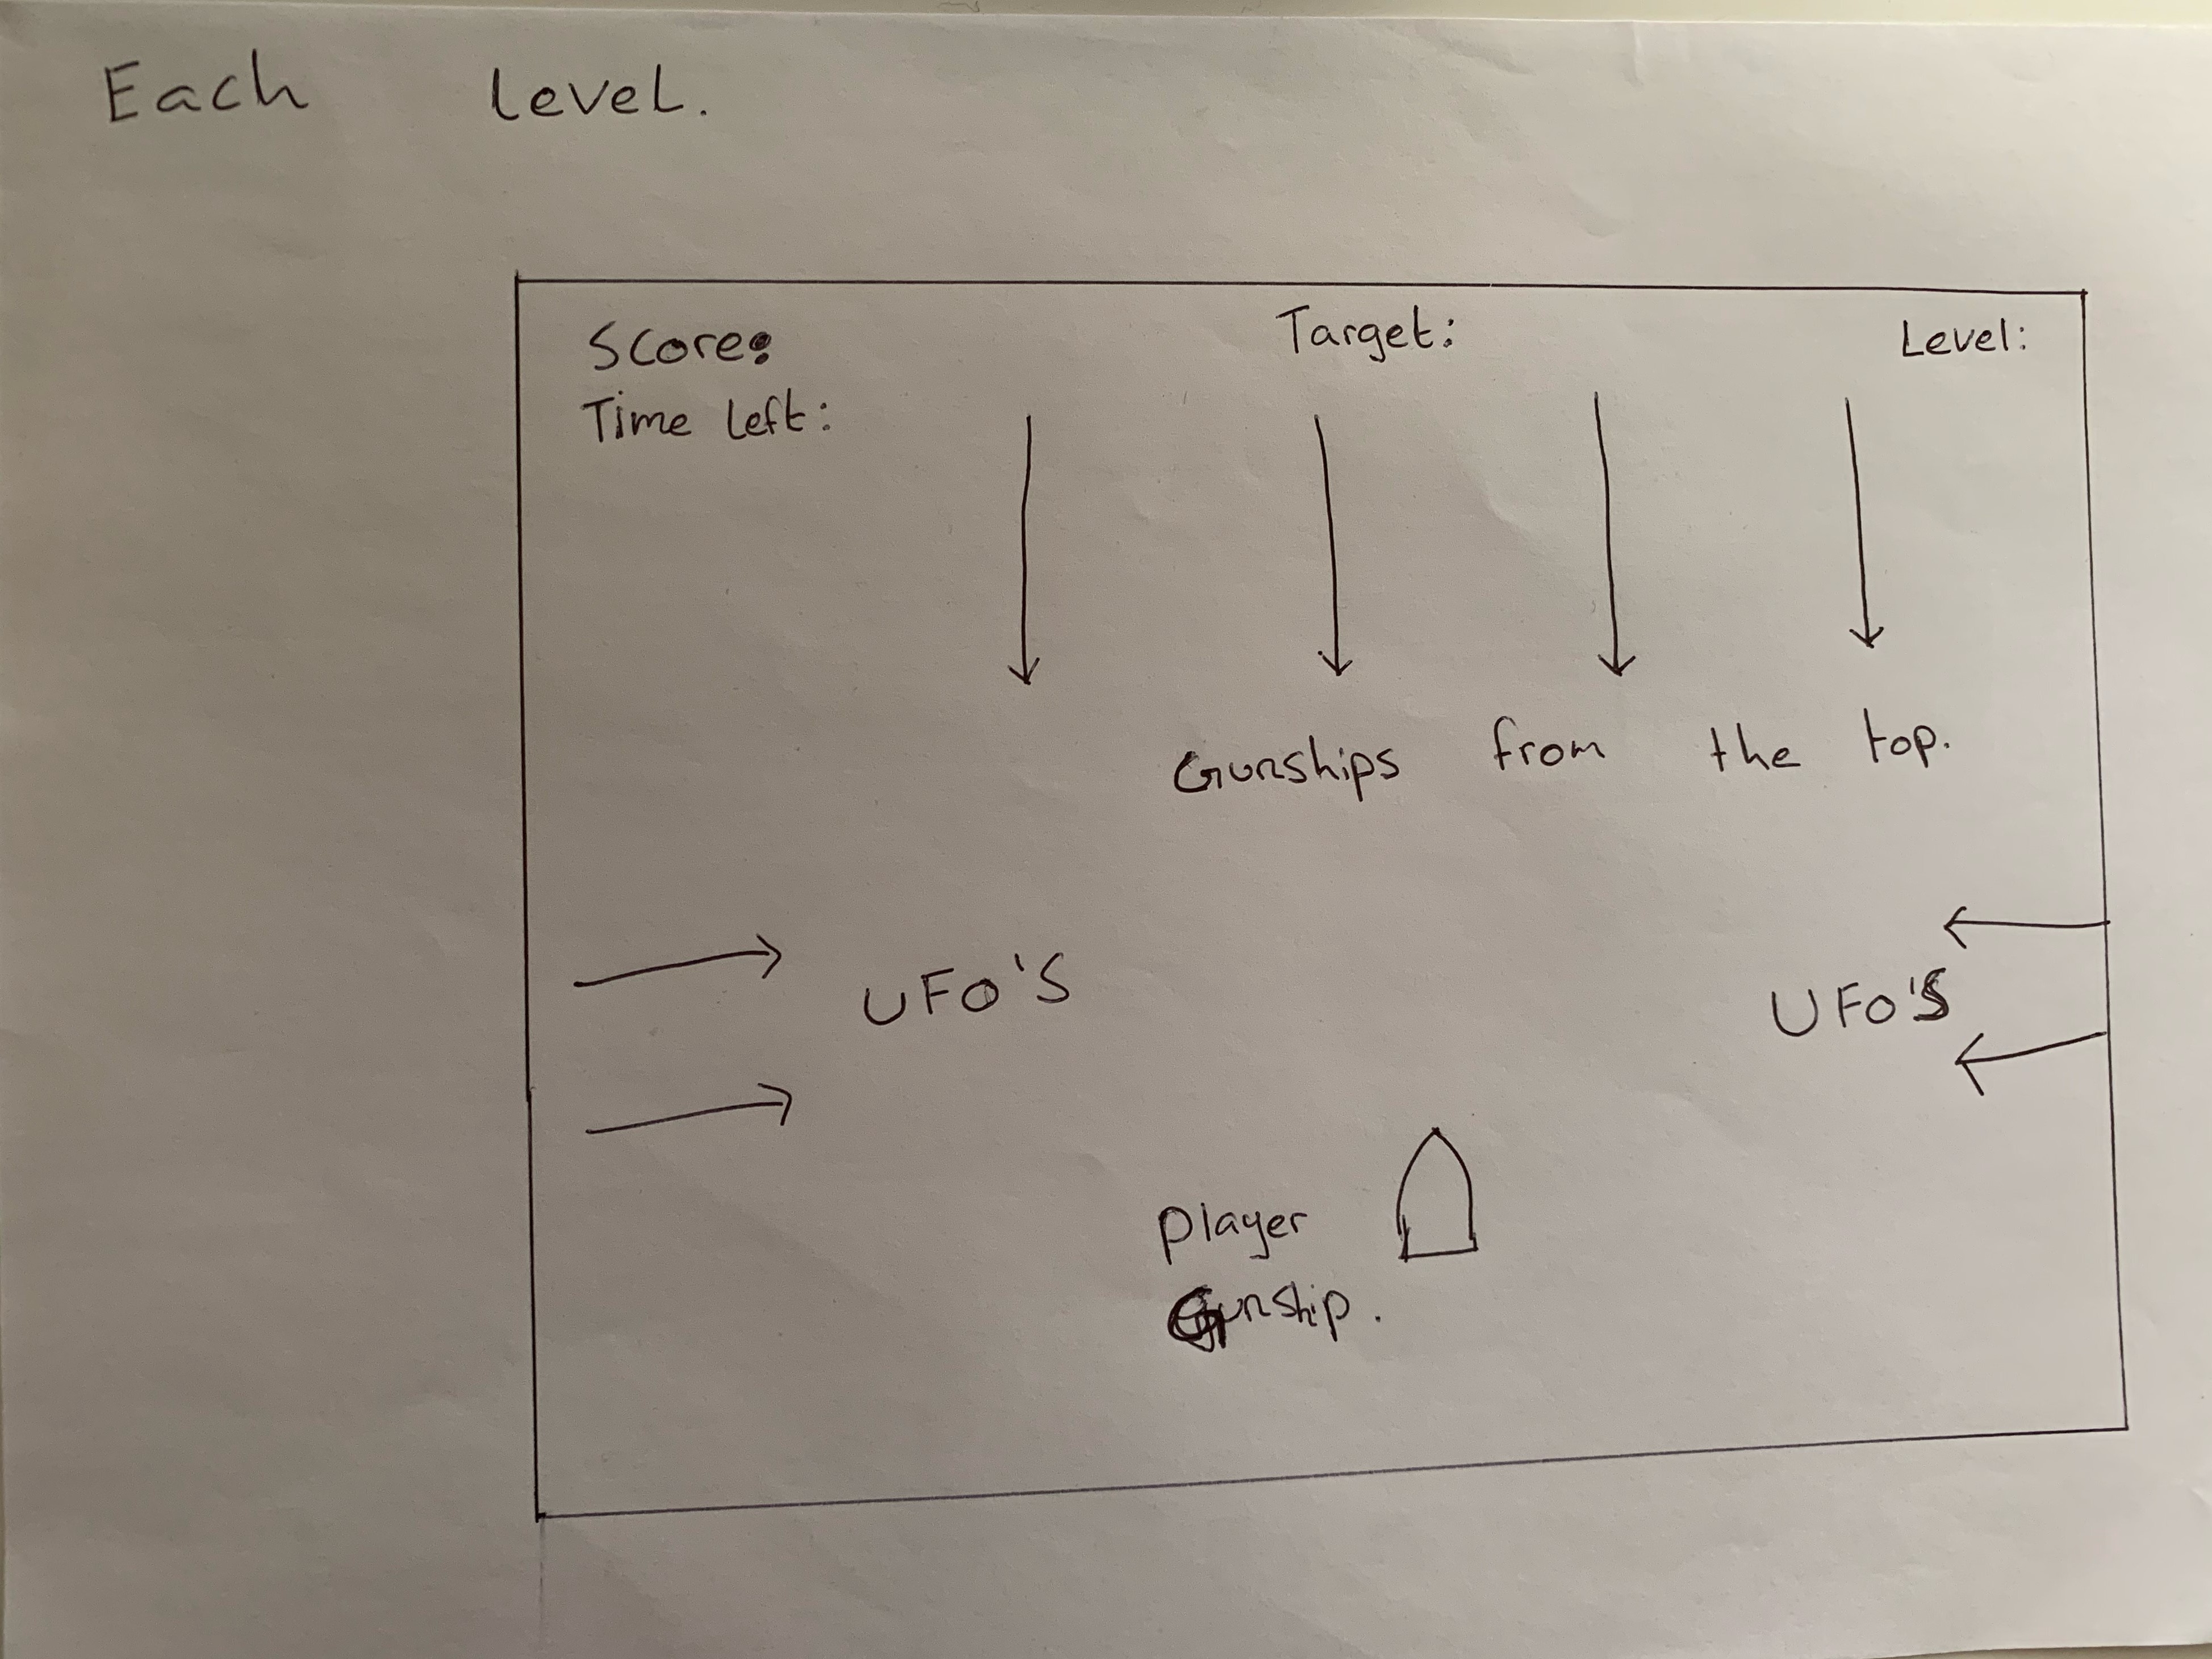 Each level.
Score: Target: Level:
Time left:
Gunships from the top.
UFO'S UFO'S
player
Gunship.